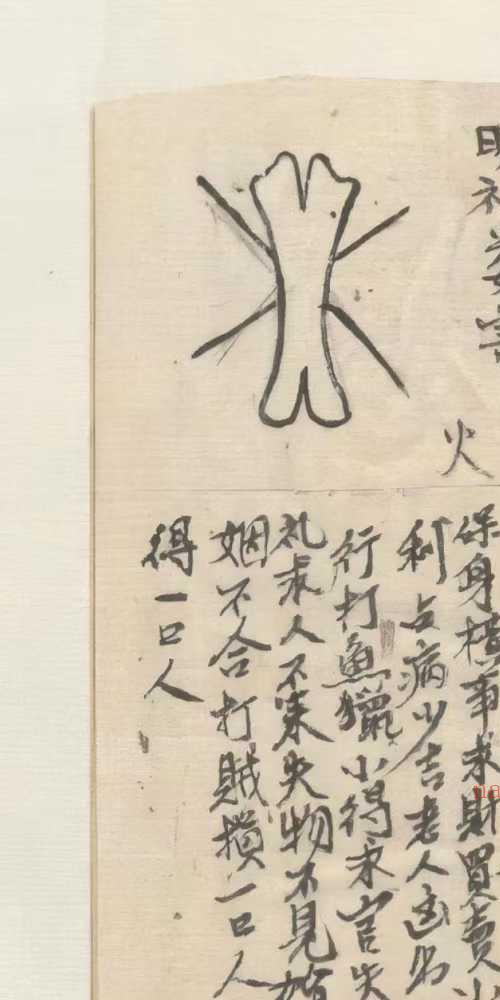 火
保身横事求財買賣小
利占病少吉老人凶出
行打魚獵小得求官失
礼求人不来失物不見婚
姻不合打賊損一口人
得一口人